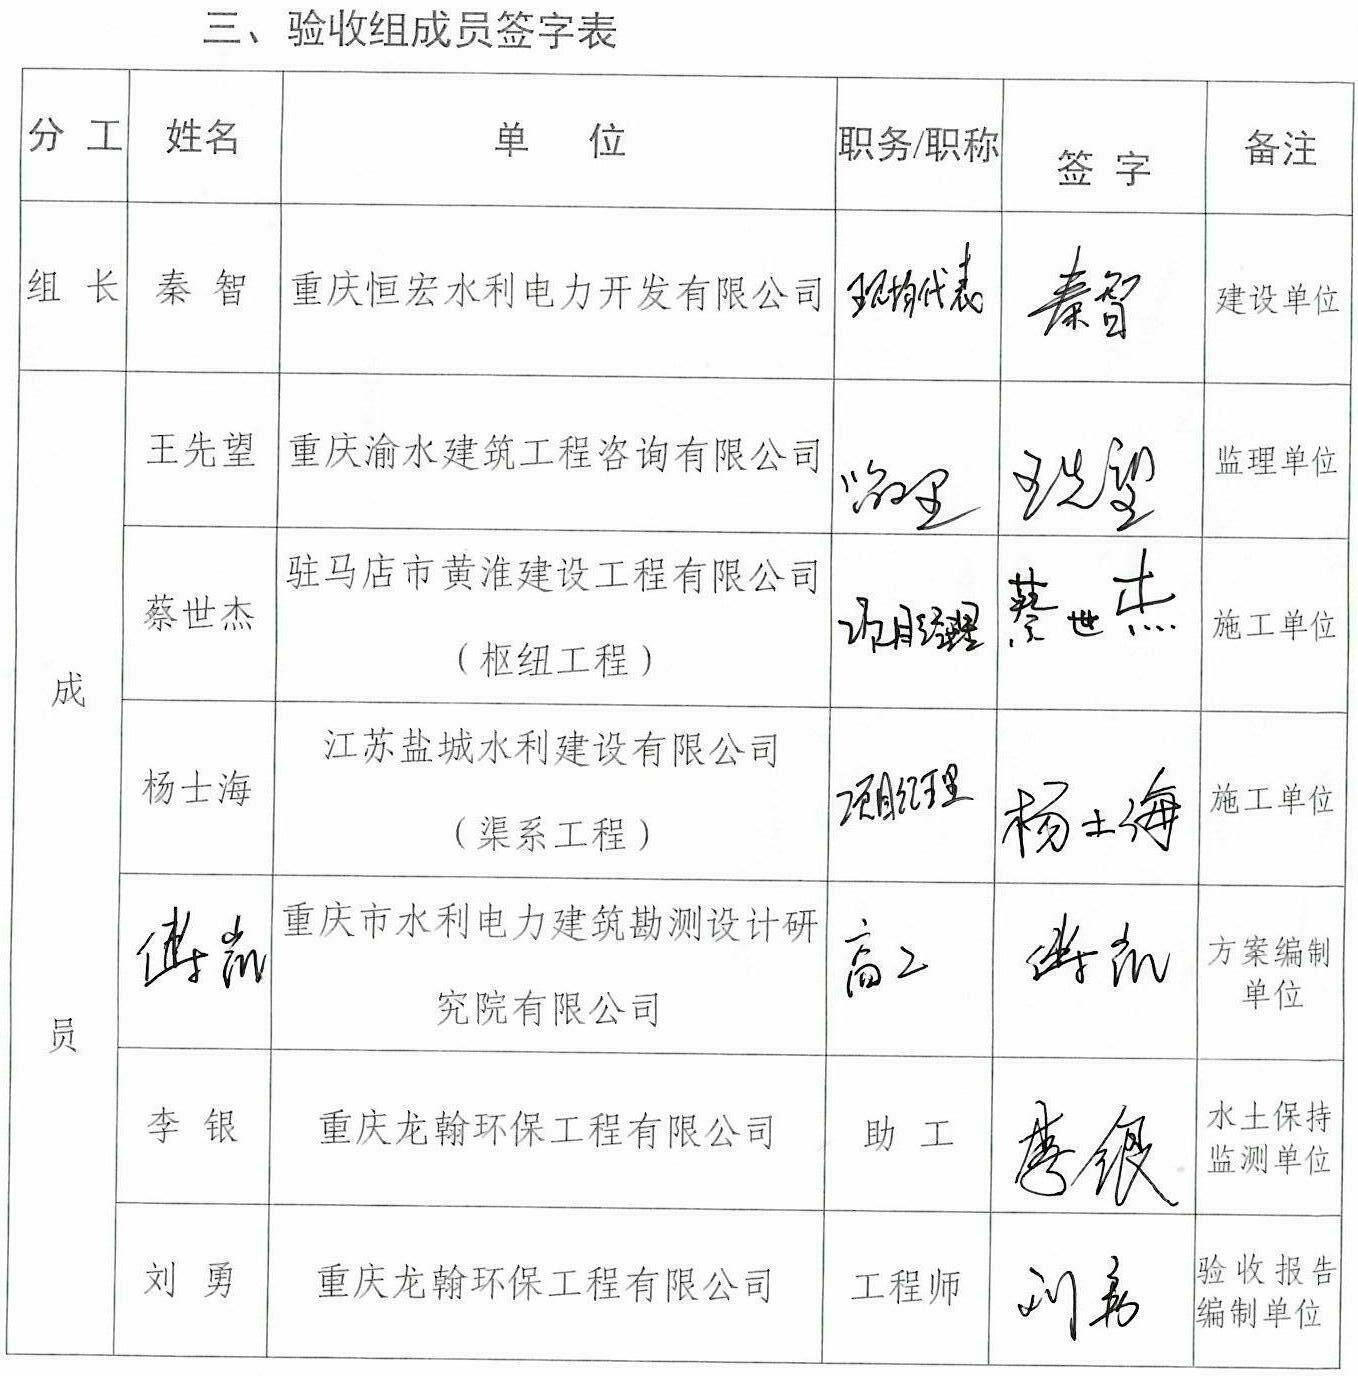 三、验收组成员签字表
分 工 姓名 单 位 职务/职称 签 字 备注
组 长 秦 智 重庆恒宏水利电力开发有限公司 现场代表 秦智 建设单位
成 员
王先望 重庆渝水建筑工程咨询有限公司 监理 王先望 监理单位
蔡世杰 驻马店市黄淮建设工程有限公司 项目经理 蔡世杰 施工单位
（枢纽工程）
杨士海 江苏盐城水利建设有限公司 项目经理 杨士海 施工单位
（渠系工程）
傅凯 重庆市水利电力建筑勘测设计研 高工 傅凯 方案编制
究院有限公司 单位
李 银 重庆龙翰环保工程有限公司 助 工 李银 水土保持
监测单位
刘 勇 重庆龙翰环保工程有限公司 工程师 刘勇 验收报告
编制单位